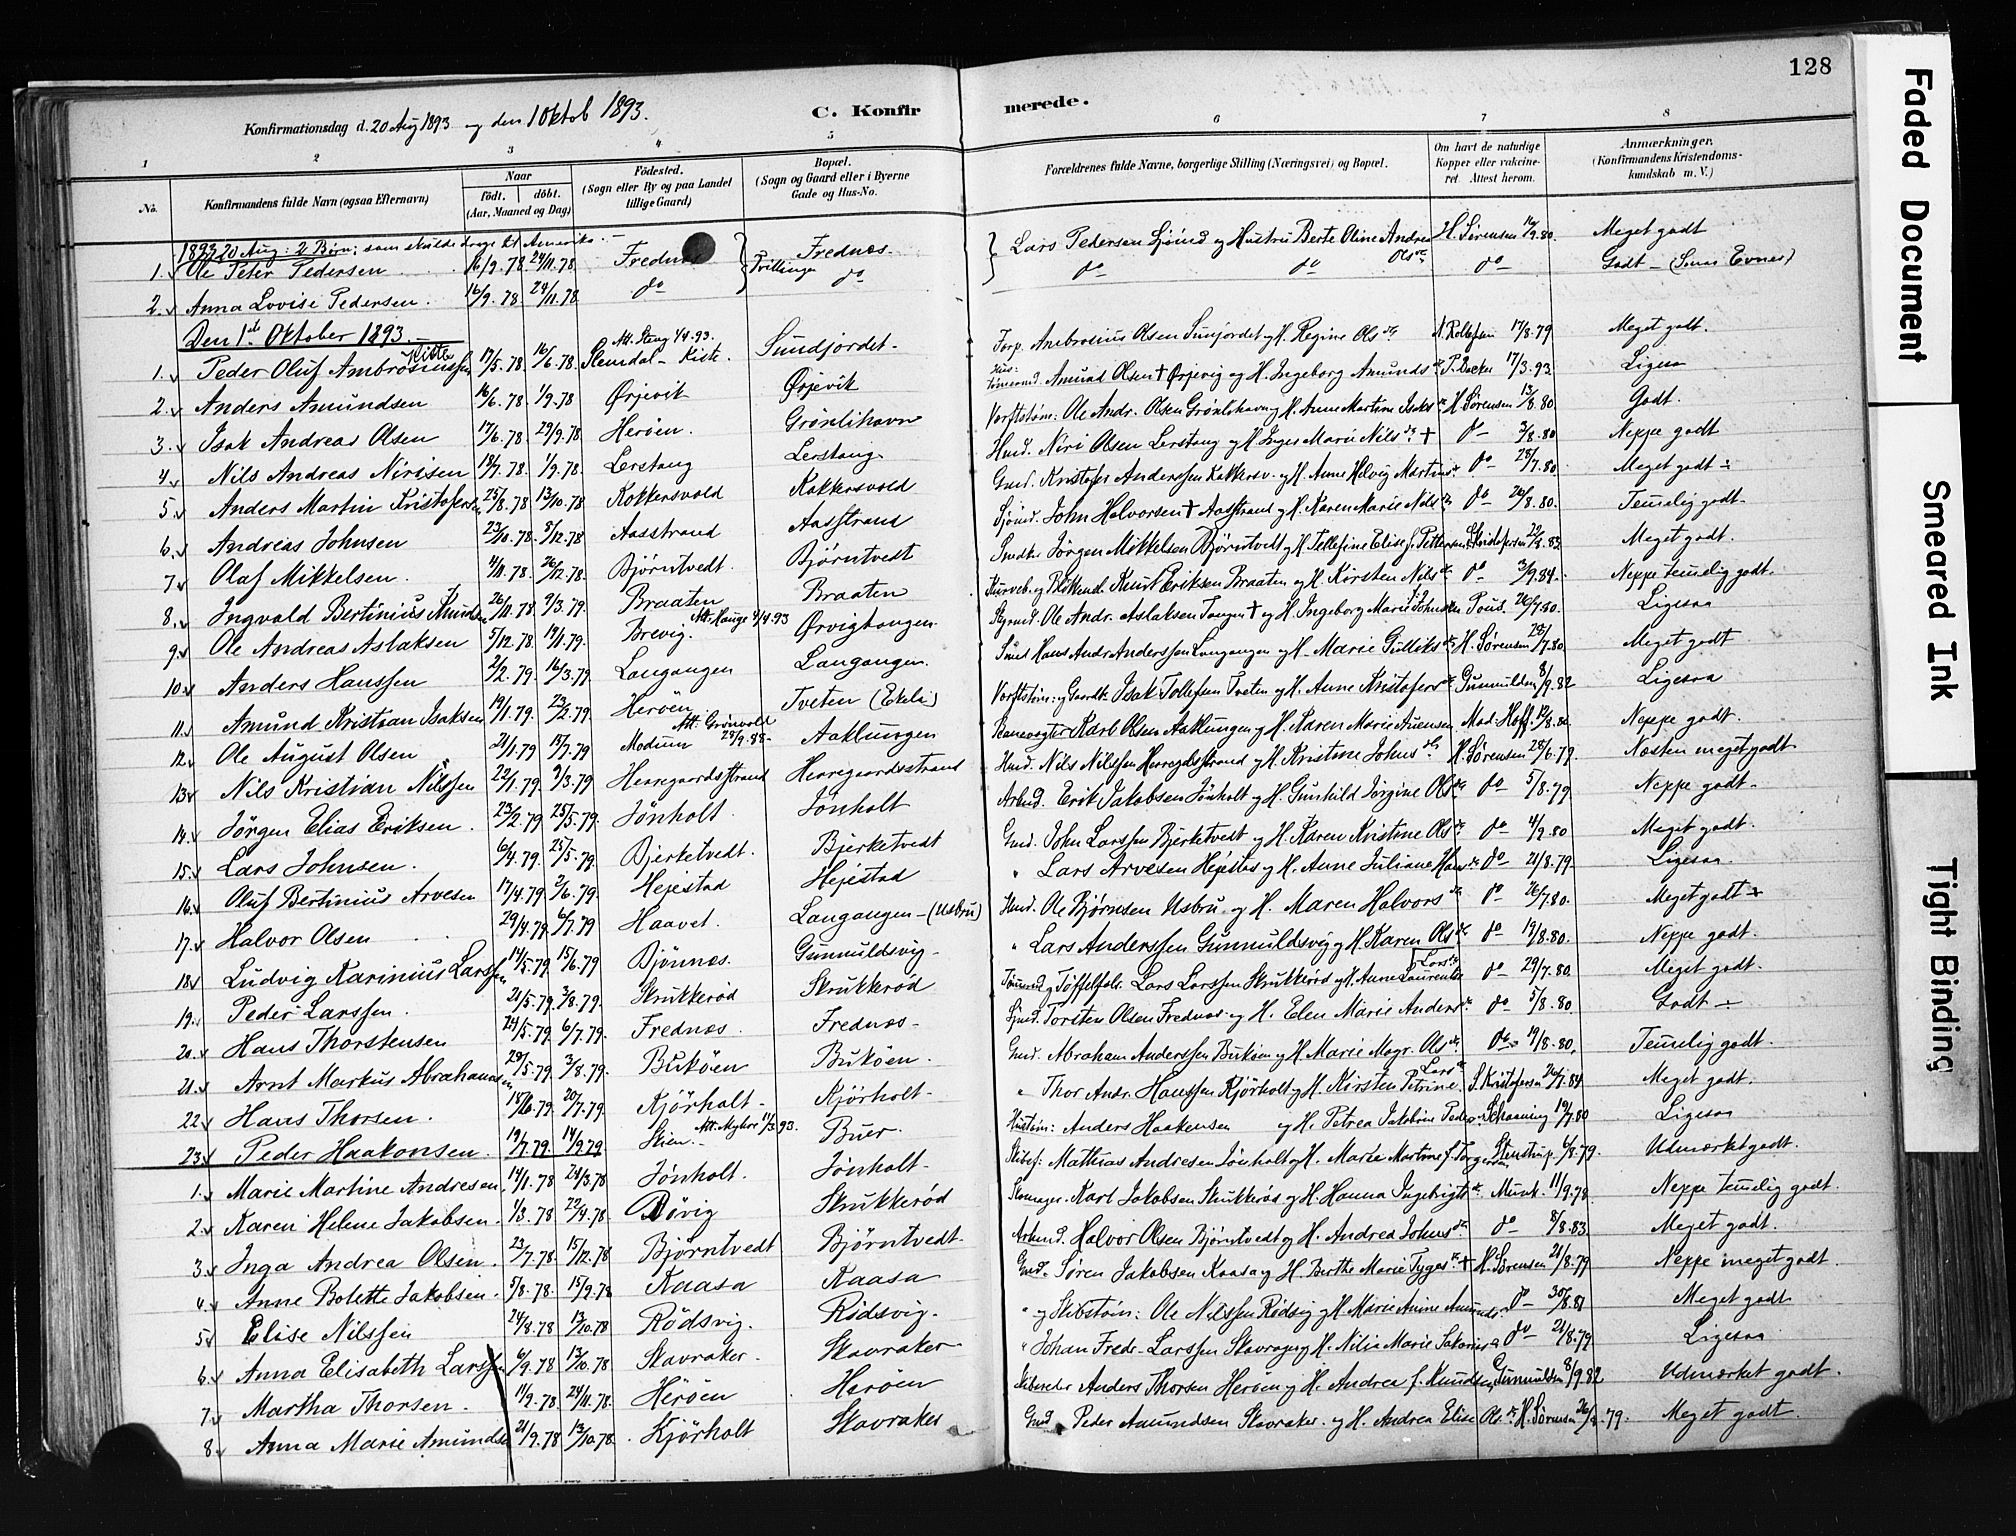 128
Faded Document
Smeared Ink
Tight Binding
Konfirmationsdag d. 20 Aug 1893 og den 1 Oktob 1893.
C. Konfirmerede.
1 2 3 4 5 6 7 8
No. Konfirmandens fulde Navn (ogsaa Efternavn) Naar født. døbt. (Aar, Maaned og Dag) Fødested. (Sogn eller By og paa Landet tillige Gaard) Bopæl. (Sogn og Gaard eller i Byerne Gade og Hus-No. Forældrenes fulde Navne, borgerlige Stilling (Næringsvei) og Bopæl. Om havt de naturlige Kopper eller vakcineret. Attest herom. Anmærkninger. (Konfirmandens Kristendomskundskab m. V.)
1893 20 Aug: 2 Børn, som skulde drage til Amerika.
1. Ole Peter Pedersen 16/9.78 24/11.78 Frednæs Frednæs. Lars Pedersen Sjömd og Hustru Berte Oline Andrea Ols dr H. Sørensen 80. Meget godt
2. Anna Lovise Pedersen. 16/9.78 24/11.78 do Trillinge do do do do Godt - (Smaa Evner)
Den 1ste Oktober 1893.
1. Peder Oluf Ambrosiussen Kiste 17/5.78 16/6.78 Stendal - Kiste. Sundjordet. Ambrosius Olsen Sunjordet og H. Regine Ols dr A. Rollefsen 17/8.79 Meget godt.
2. Anders Amundsen 16/6.78 1/9.78 Ørjevik Ørjevik Tømmermd. Amund Olsen † Ørjevig og H. Ingeborg Amunds dr 17/3.93 Ligesaa
3. Isak Andreas Olsen 17/6.78 29/9.78 Herøen. Grönlihavn Verftstöm: Ole Andr. Olsen Grönlihavn og H. Anne Martine Isaks dr H. Sørensen 13/8.80. Godt.
4. Nils Andreas Nirisen 18/7.78 1/9.78. Lerstang Lerstang Husd. Niri Olsen Lerstang og H. Inger Marie Nils dr † do 3/8.80 Neppe godt
5. Anders Martin Kristofersen 25/8.78 13/10.78 Kokkersvold Kokkersvold Gmd. Kristofer Anderssen Kokkersv. og H. Anne Helvig Martins dr do 28/7.80 Meget godt
6. Andreas Johnsen 23/10.78. 8/12.78 Aasstrand Aasstrand Sjömd. John Halvorsen † Aasstrand og H. Karen Marie Nils dr do 26/8.80. Temelig godt.
7. Olaf Mikkelsen. 4/11.78. 26/12.78. Björntvedt. Björntvedt Snedker Jörgen Mikkelsen Björntvedt og H. Tellefine Elise f. Pettersen S. Kristofersen Meget godt.
8. Ingvald Bertinius Knudsen 26/11.78 9/3.79. Braaten Braaten Knud Eriksen Braaten og H. Kirsten Nils dr do 3/9.84. Neppe temelig godt
9. Ole Andreas Aslaksen 5/12.78. 19/1.79. Brevig. Att. Hauge 4/4.93 Ørvigtangen. Ole Andr. Aslaksen Tangen † og H. Ingeborg Marie Johnsen Pous. 26/7.80. Ligesaa
10. Anders Hanssen 2/2.79. 16/3.79. Langangen Langangen. Smed Hans Andr Anderssen Langangen og H. Marie Gulliks dr H. Sørensen 28/7.80 Meget godt
11. Amund Kristian Isaksen 19/1.79. 23/2.79. Herøen Tveten (Ekela) Verftstöm: og Gaardb. Isak Tollefsen Tveten og H. Anne Kristofers dr Gunnulden 8/9.82 Ligesaa
12. Ole August Olsen 21/1.79 15/7.79 Modum Att. Grönvold 28/9.88. Aaklungen Banevogter Karl Olsen Aaklungen og H. Karen Marie Auensen Mad. Hoff. 12/8.80. Neppe godt.
13. Nils Kristian Nilssen 22/1.79 9/3.79 Herregaardsstrand Herregaardsstrand Husd. Nils Nilssen Herregdsstrand og H. Kristine Johns dtr H. Sørensen 28/6.79 Næsten meget godt
14. Jörgen Elias Eriksen. 23/2.79 25/5.79. Jönholt. Jönholt Arbmd. Erik Jakobsen Jönholt og H. Gunhild Jörgine Ols dr do 5/8.79 Neppe godt.
15. Lars Johnsen. 6/4.79. 25/5.79 Bjerketvedt. Bjerketvedt Gmd. John Larssen Bjerketvedt og H. Karen Kristine Ols dr do 4/9.80 Meget godt.
16. Oluf Bertinius Arvesen 17/4.79 2/6.79. Hejestad Hejestad " Lars Arvesen Hejestad og H. Anne Juliane Hans dr do 21/8.79. Ligesaa.
17. Halvor Olsen 29/4.79 6/7.79 Haavet. Langangen - (Usbru) Husd. Ole Björnsen Usbru og H. Maren Halvors dr do 26/7.80. Meget godt
18. Ludvig Karinius Larssen 14/5.79. 15/6.79 Bjönnes. Gunnuldsvig " Lars Anderssen Gunnuldsvig og H. Karen Ols dr do 19/8.80. Neppe godt.
19. Peder Larssen. 21/5.79. 3/8.79. Skrukkerød Skrukkerød Tømmermd og Töffelfab. Lars Larssen Skrukkerød og H. Anne Laurentse Lars dr do 29/7.80. Meget godt.
20. Hans Thorstensen 24/5.79. 6/7.79. Frednæs. Frednæs. Sjömd. Torsten Olsen Frednæs og H. Elen Marie Anders dr do 5/8.80. Godt
21. Arnt Markus Abrahamsen 29/5.79. 3/8.79. Buköen Buköen. Gmd. Abraham Anderssen Buköen og H. Marie Magr. Ols dr do 19/8.80. Temelig godt.
22. Hans Thorsen. 18/6.79 20/7.79. Kjörholt. Kjörholt. " Thor Andr. Hanssen Kjörholt og H. Kirsten Petrine Lars dr S. Kristofersen 26/7.84 Meget godt.
23. Peder Haakonsen. 19/7.79. 14/9.79 Skien. Att. Myhre 11/3.93. Buer. Anders Haakensen og H. Petrea Jakobine Peders. Schaaning 19/7.80 Ligesaa
1. Marie Martine Andresen. 14/1.78 24/3.78 Jönholt. Jönholt. Skibsf. Mathias Andresen Jönholt og H. Marie Martine f. Torgersen Stenstrup 6/8.79. Udmærket godt.
2. Karen Helene Jakobsen. 1/3.78 22/4.78 Bövig Skrukkerød Skomager. Karl Jakobsen Skrukkerød og H. Hanna Ingebrigts dr Munk. 11/9.78. Neppe temelig godt.
3. Inga Andrea Olsen. 23/7.78 15/12.78 Björntvedt Björntvedt. Arbmd. Halvor Olsen Björntvedt og H. Andrea Johns dr do 8/8.83. Meget godt.
4. Anne Bolette Jakobsen. 5/8.78. 15/9.78 Kaasa Kaasa Gmd. Sören Jakobsen Kaasa og H. Berthe Marie Tyges dr † H. Sørensen 21/8.79 Neppe meget godt.
5. Elise Nilssen 24/8.78 13/10.78 Rödsvig. Rödsvig. " og Skibstöm: Ole Nilssen Rödsvig og H. Marie Anine Amunds dr do 30/8.81 Meget godt
6. Anna Elisabeth Larssen 6/9.78 13/10.78 Skavraker. Skavraker " Johan Fredr. Larssen Skavrager og H. Nilia Marie do 21/8.79 Ligesaa
7. Martha Thorsen. 11/9.78 24/11.78. Heröen Heröen Skibsreder Anders Thorsen Heröen og H. Andrea f. Knudsen Gunnulden 8/9.82 Udmærket godt.
8. Anna Marie Amundsen 21/9.78 13/10.78. Kjörholt Skavraker Gmd. Peder Amundsen Skavraker. og H. Andrea Elise Ols dr H. Sørensen 79. Meget godt.